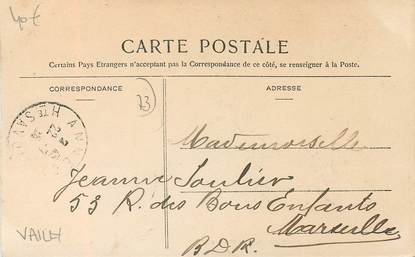 40€
CARTE POSTALE
Certains Pays Etrangers n'acceptant pas la Correspondance de ce côté, se renseigner à la Poste.
CORRESPONDANCE
ADRESSE
73
Mademoiselle
Jeanne Soulier
53 R. des Bons Enfants
Marseille
B.D.R.
VAILLY